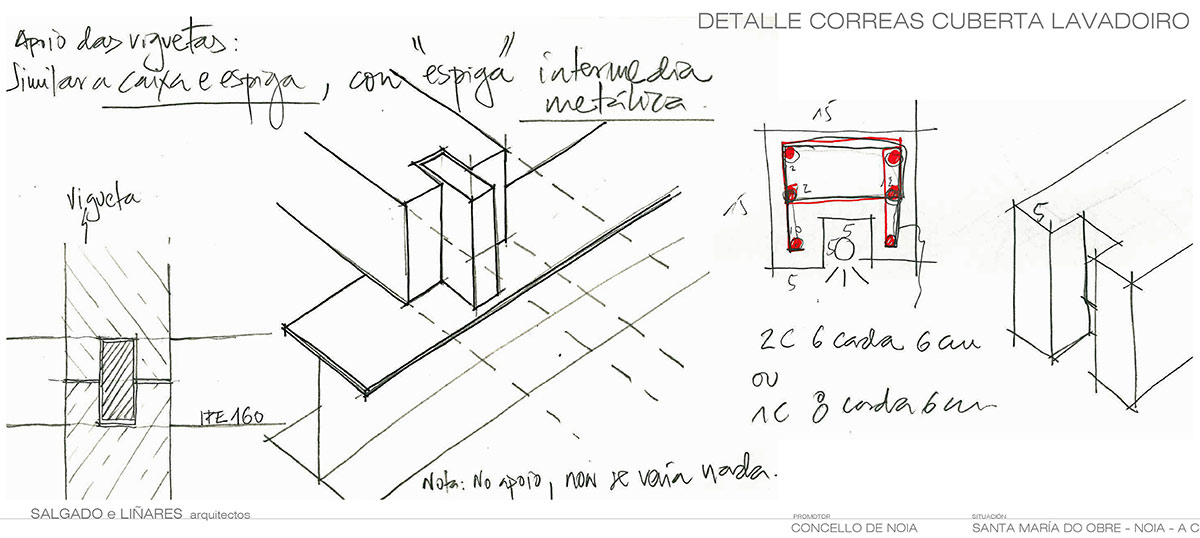 DETALLE CORREAS CUBERTA LAVADOIRO
Apoio das viguetas:
Similar a caixa e espiga, con "espiga" intermedia
metálica.
vigueta
IPE 160
15
15
2
2
12
10
5
5
5
5
2C 6 cada 6 cm
ou
1C 8 cada 6 cm
Nota: No apoio, non se varía nada.
SALGADO e LIÑARES arquitectos
PROMOTOR
CONCELLO DE NOIA
SITUACIÓN
SANTA MARÍA DO OBRE - NOIA - A C